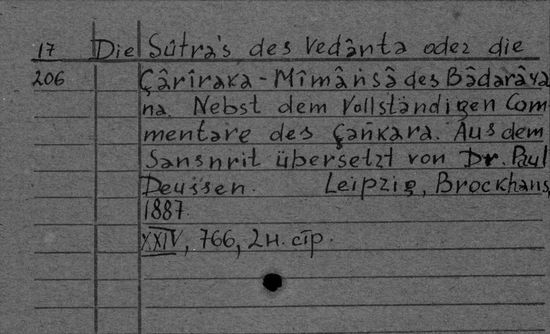 17 Die Sûtra's des Vedânta oder die
206 Çârîraka-Mîmâṅsâ des Bâdarâya
na. Nebst dem Vollständigen Com
mentare des Çañkara. Aus dem
Sansnrit übersetzt von Dr. Paul
Deussen. Leipzig, Brockhans,
1887.
XXIV, 766, 2 н. стр.